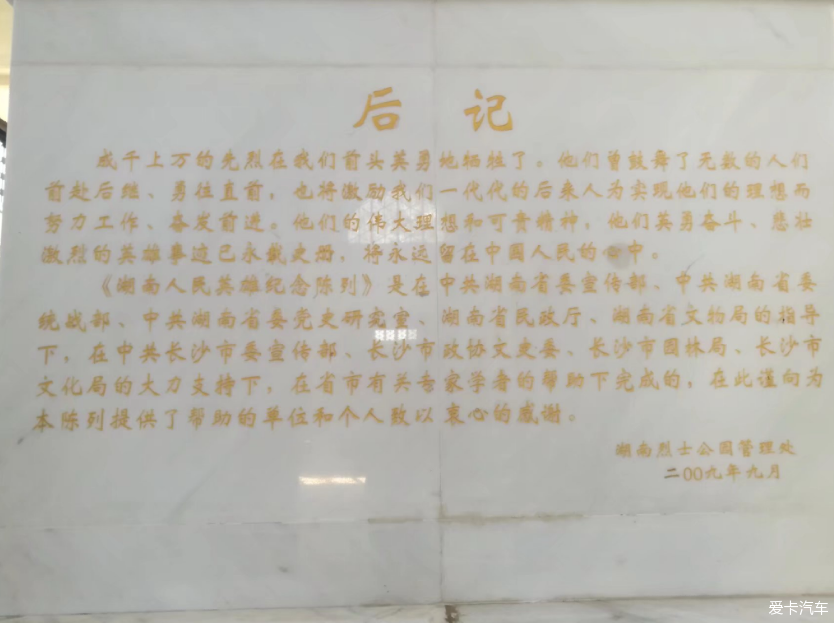 后记
成千上万的先烈在我们前头英勇地牺牲了。他们曾鼓舞了无数的人们
前赴后继、勇往直前,也将激励我们一代代的后来人为实现他们的理想而
努力工作、奋发前进。他们的伟大理想和可贵精神,他们英勇奋斗、悲壮
激烈的英雄事迹已永载史册,将永远留在中国人民的心中。
《湖南人民英雄纪念陈列》是在中共湖南省委宣传部、中共湖南省委
统战部、中共湖南省委党史研究室、湖南省民政厅、湖南省文物局的指导
下,在中共长沙市委宣传部、长沙市政协文史委、长沙市园林局、长沙市
文化局的大力支持下,在省市有关专家学者的帮助下完成的,在此谨向为
本陈列提供了帮助的单位和个人致以衷心的感谢。
湖南烈士公园管理处
二00九年九月
爱卡汽车